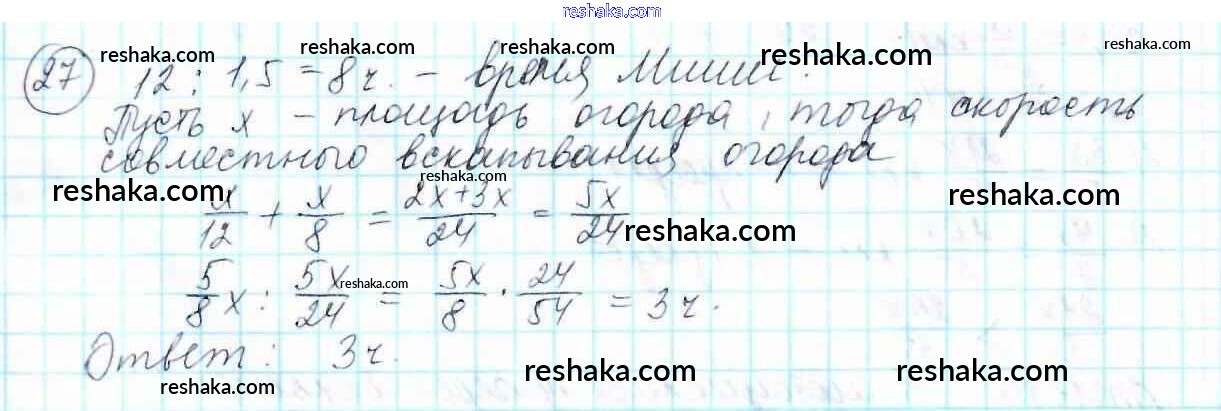 reshaka.com
27 12 : 1,5 = 8 ч. – время Миши.
reshaka.com reshaka.com reshaka.com reshaka.com
Пусть x – площадь огорода, тогда скорость
reshaka.com reshaka.com reshaka.com
совместного вскапывания огорода
reshaka.com reshaka.com
x/12 + x/8 = 2x+3x/24 = 5x/24
reshaka.com
5/8 x : 5x/24 = 5x/8 · 24/54 = 3 ч.
reshaka.com
Ответ: 3 ч.
reshaka.com reshaka.com reshaka.com